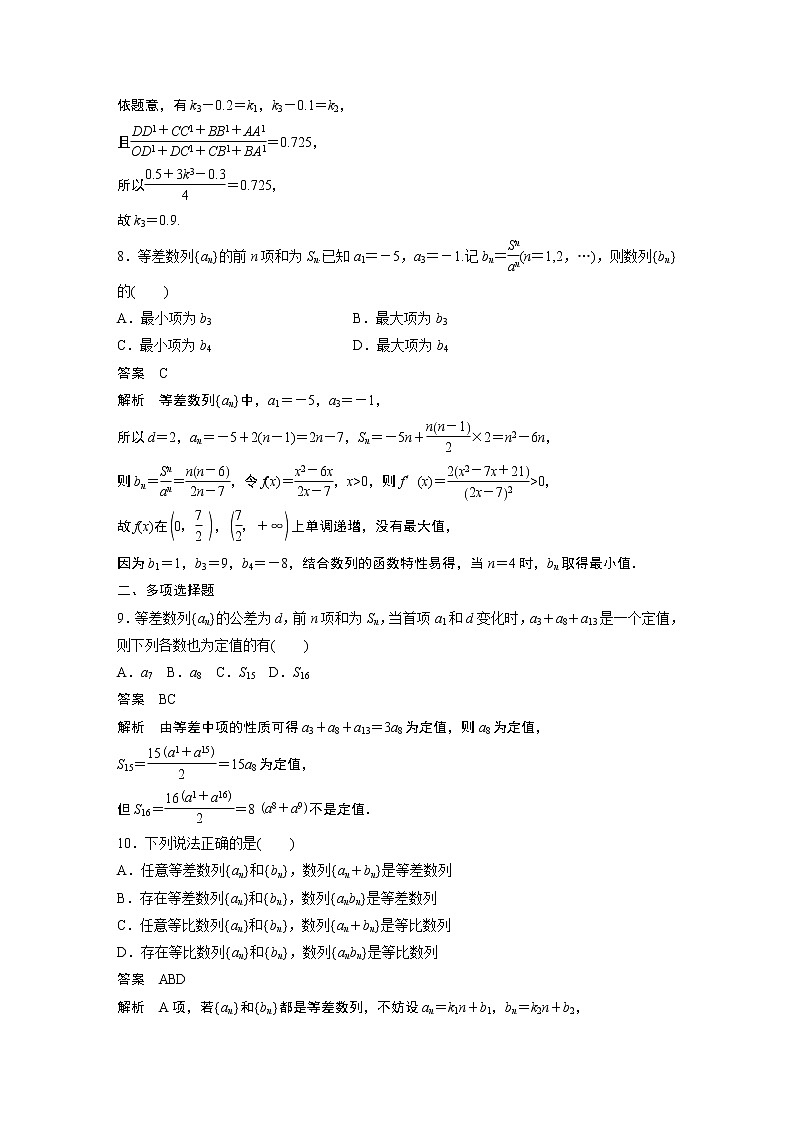 依题意，有 k₃－0.2＝k₁，k₃－0.1＝k₂，
且(DD¹＋CC¹＋BB¹＋AA¹)/(OD¹＋DC¹＋CB¹＋BA¹)＝0.725，
所以(0.5＋3k³－0.3)/4＝0.725，
故 k₃＝0.9.
8．等差数列{aₙ}的前 n 项和为 Sₙ.已知 a₁＝－5，a₃＝－1.记 bₙ＝Sⁿ/aⁿ(n＝1,2，…)，则数列{bₙ}
的(　　)
A．最小项为 b₃　B．最大项为 b₃
C．最小项为 b₄　D．最大项为 b₄
答案　C
解析　等差数列{aₙ}中，a₁＝－5，a₃＝－1，
所以 d＝2，aₙ＝－5＋2(n－1)＝2n－7，Sₙ＝－5n＋n(n－1)/2×2＝n²－6n，
则 bₙ＝Sⁿ/aⁿ＝n(n－6)/(2n－7)，令 f(x)＝(x²－6x)/(2x－7)，x>0，则 f′(x)＝2(x²－7x＋21)/(2x－7)²>0，
故 f(x)在(0，7/2)，(7/2，＋∞)上单调递增，没有最大值，
因为 b₁＝1，b₃＝9，b₄＝－8，结合数列的函数特性易得，当 n＝4 时，bₙ取得最小值．
二、多项选择题
9．等差数列{aₙ}的公差为 d，前 n 项和为 Sₙ，当首项 a₁和 d 变化时，a₃＋a₈＋a₁₃是一个定值，
则下列各数也为定值的有(　　)
A．a₇　B．a₈　C．S₁₅　D．S₁₆
答案　BC
解析　由等差中项的性质可得 a₃＋a₈＋a₁₃＝3a₈为定值，则 a₈为定值，
S₁₅＝15(a¹＋a¹⁵)/2＝15a₈为定值，
但 S₁₆＝16(a¹＋a¹⁶)/2＝8(a⁸＋a⁹)不是定值．
10．下列说法正确的是(　　)
A．任意等差数列{aₙ}和{bₙ}，数列{aₙ＋bₙ}是等差数列
B．存在等差数列{aₙ}和{bₙ}，数列{aₙbₙ}是等差数列
C．任意等比数列{aₙ}和{bₙ}，数列{aₙ＋bₙ}是等比数列
D．存在等比数列{aₙ}和{bₙ}，数列{aₙbₙ}是等比数列
答案　ABD
解析　A 项，若{aₙ}和{bₙ}都是等差数列，不妨设 aₙ＝k₁n＋b₁，bₙ＝k₂n＋b₂，